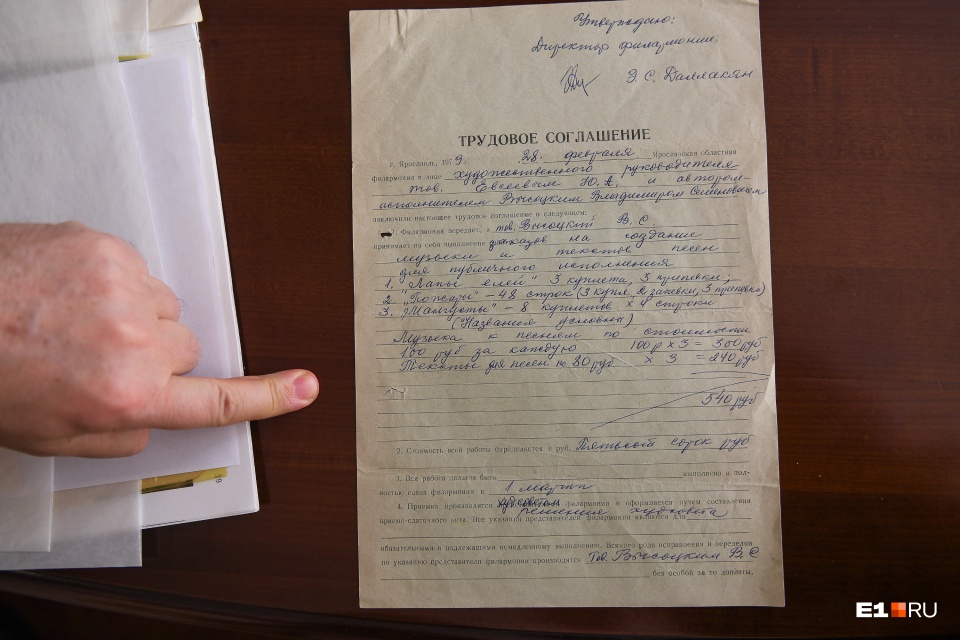 Утверждаю:
Директор филармонии:
Э. С. Даллакян
ТРУДОВОЕ СОГЛАШЕНИЕ
г. Ярославль, 1979. „28„ февраля Ярославская областная
филармония в лице художественного руководителя
тов. Евсеевым Ю.А, и автором-
исполнителем Высоцким Владимиром Семеновичем
заключили настоящее трудовое соглашение о следующем:
1. Филармония передает, а тов. Высоцкий В. С
принимает на себя выполнение заказов на создание
музыки и текстов песен
для публичного исполнения
1. "Лапы елей" 3 куплета, 3 припевки;
2. "Пожары" - 48 строк (3 купл, 2 запевки, 3 припевки)
3. "Мангусты" - 8 куплетов х 4 строки
(Названия условны)
Музыка к песням по стоимости
100 руб за каждую 100 р х 3 = 300 руб
Тексты для песен по 80 руб х 3 = 240 руб
540 руб
2. Стоимость всей работы определяется в руб. Пятьсот сорок руб
3. Вся работа должна быть выполнена и пол-
ностью сдана филармонии к 1 марта
4. Приемка производится худсоветом филармонии и оформляется путем составления
решения худсовета
приемо-сдаточного акта. Все указания представителей филармонии являются для
обязательными и подлежащими немедленному выполнению. Всякого рода исправления и переделки
по указанию представителя филармонии производятся Тов. Высоцким В. С
без особой за то доплаты.
E1.RU